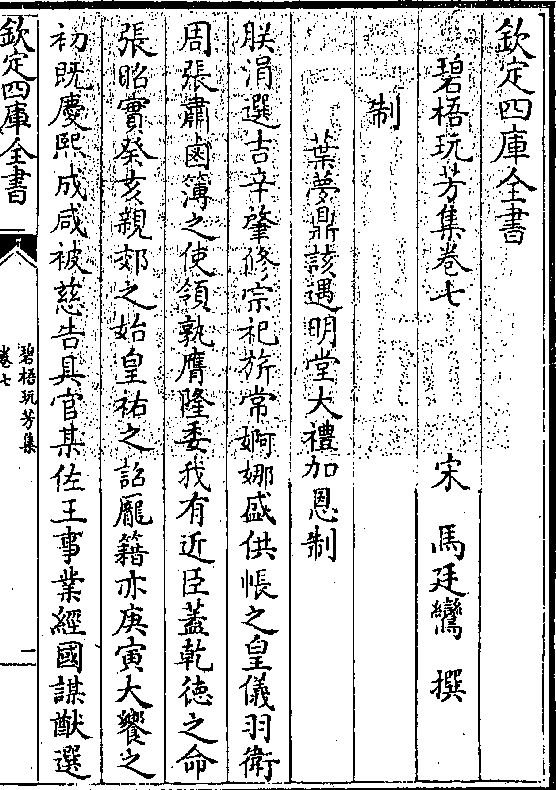 欽定四庫全書
碧梧玩芳集卷七
宋 馬廷鸞 撰
制
葉夢鼎該遇明堂大禮加恩制
朕涓選吉辛肇修宗祀旂常婀娜盛供帳之皇儀羽衛
周張肅鹵簿之使領孰膺隆委我有近臣蓋乾徳之命
張昭實癸亥親郊之始皇祐之詔龎籍亦庚寅大饗之
初既慶熙成咸被慈告具官某佐王事業經國謀猷選
欽定四庫全書
碧梧玩芳集
卷七
一